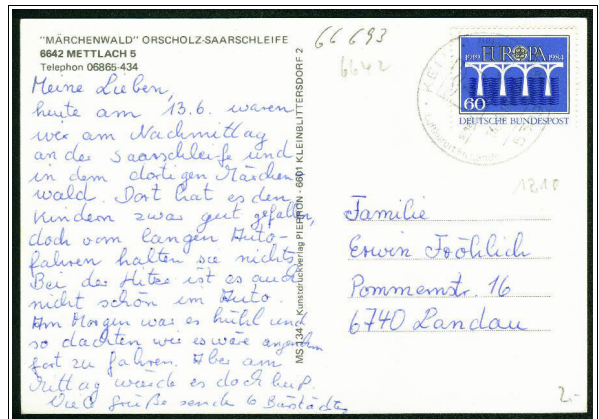 "MÄRCHENWALD" ORSCHOLZ-SAARSCHLEIFE
6642 METTLACH 5
Telephon 06865-434
Meine Lieben,
heute am 13.6. waren
wir am Nachmittag
an der Saarschleife und
in dem dortigen Märchen
wald. Dort hat es den
Kindern zwar gut gefallen,
doch vom langen Auto-
fahren halten sie nichts.
Bei der Hitze ist es auch
nicht schön im Auto.
Am Morgen war es kühl und
so dachten wir es wäre angenehm
fort zu fahren. Aber am
Mittag wurde es doch heiß.
Viele Grüße
MS 134 2 Kunstdruckverlag PIERRON - 6601 KLEINBLITTERSDORF 2
66 693
6642
1919 EUROPA 1984
60
DEUTSCHE BUNDESPOST
1210
Familie
Erwin Fröhlich
Pommernstr. 16
6740 Landau
2.-